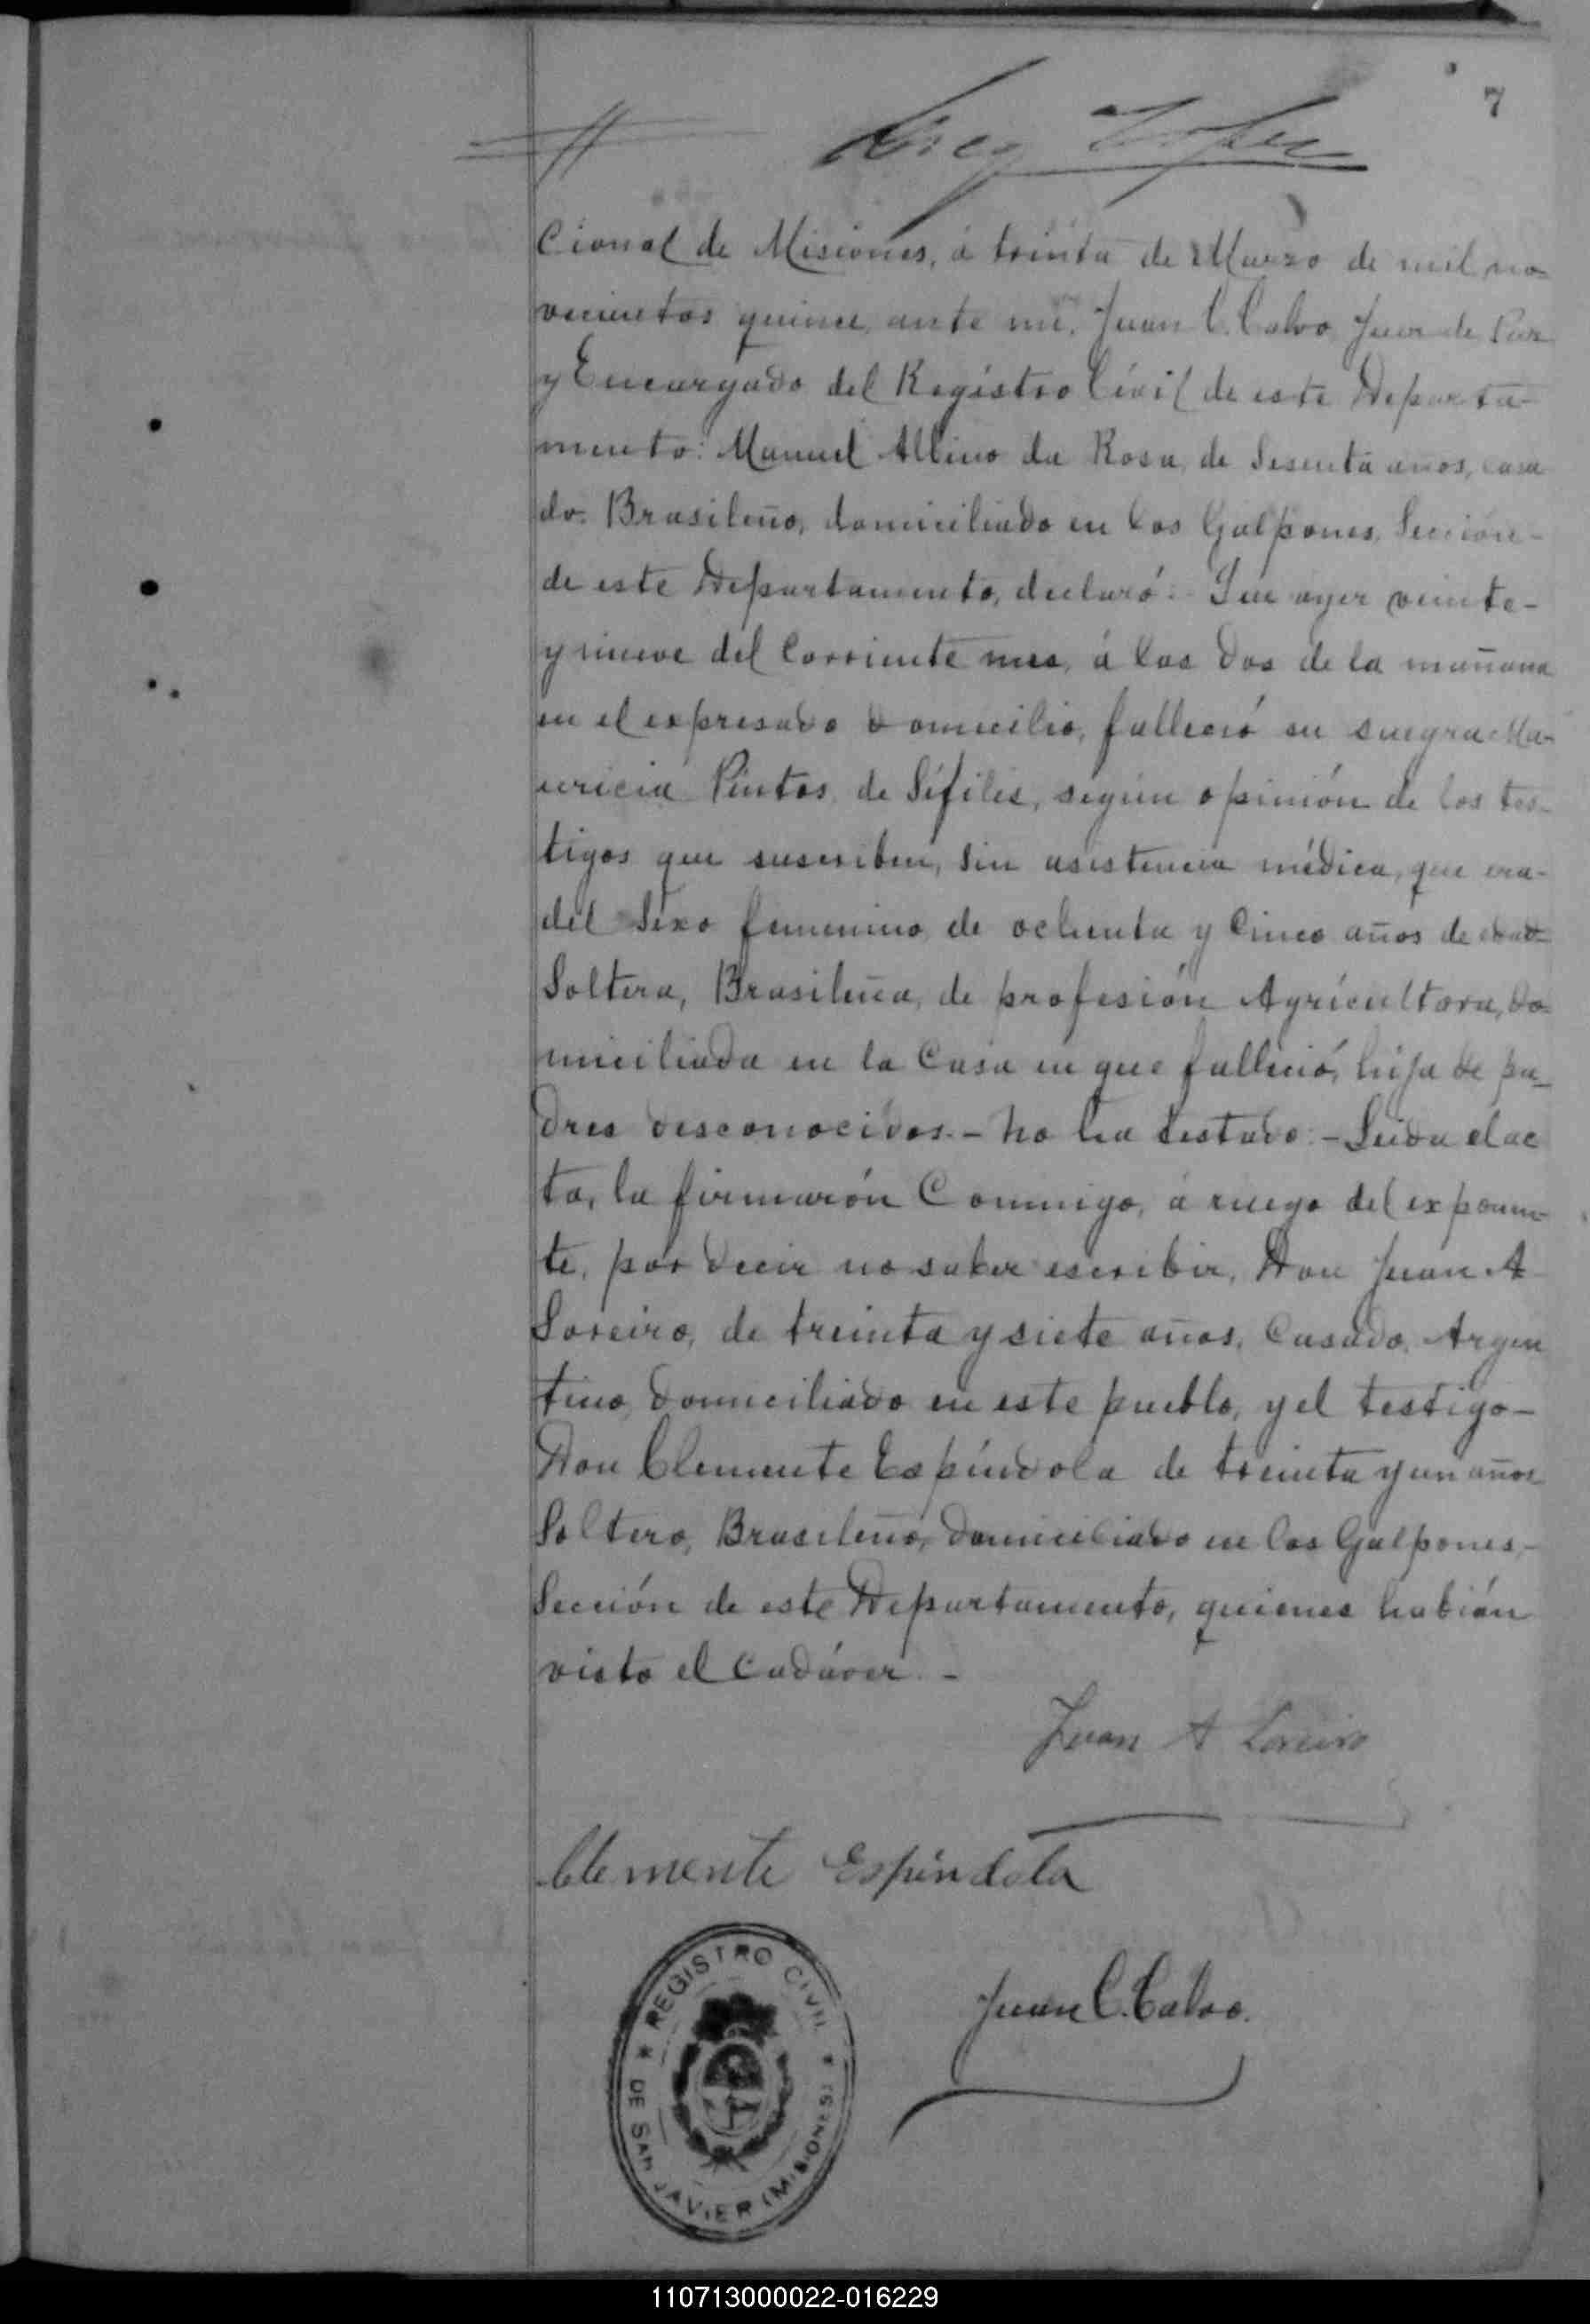 7
cional de Misiones, á trinta de Marzo de mil no-
vecientos quince, ante mi, Juan C. Calvo, Juez de Paz
y Encargado del Registro Civil de este Departa-
mento: Manuel Albino da Rosa, de Sesenta años, casa
do. Brasileño, domiciliado en Los Galpones, Sección-
de este Departamento, declaró: Que ayer veinte-
y nueve del Corriente mes, á las dos de la mañana
en el expresado domicilio, falleció su suegra Ma-
uricia Pintos, de Sífilis, según opinión de los tes-
tigos que suscriben, sin asistencia médica, que era-
del Sexo femenino, de ochenta y Cinco años de edad
Soltera, Brasileña, de profesión Agrícultora, do-
miciliada en la Casa en que falleció, hija de pa-
dres desconocidos.- No ha testado.- Leida el ac
ta, la firmarón Conmigo, á ruego del exponen-
te, por decir no saber escribir, Don Juan A
Loreiro, de treinta y siete años, Casado, Argen
tino, domiciliado en este pueblo, y el testigo-
Don Clemente Espíndola de treinta y un años
Soltero, Brasileño, domiciliado en Los Galpones,-
Sección de este Departamento, quienes habían
visto el Cadáver.-
Juan A Loreiro
Clemente Espíndola
Juan C. Calvo.
★ REGISTRO CIVIL ★
DE SAN JAVIER (MISIONES)
110713000022-016229